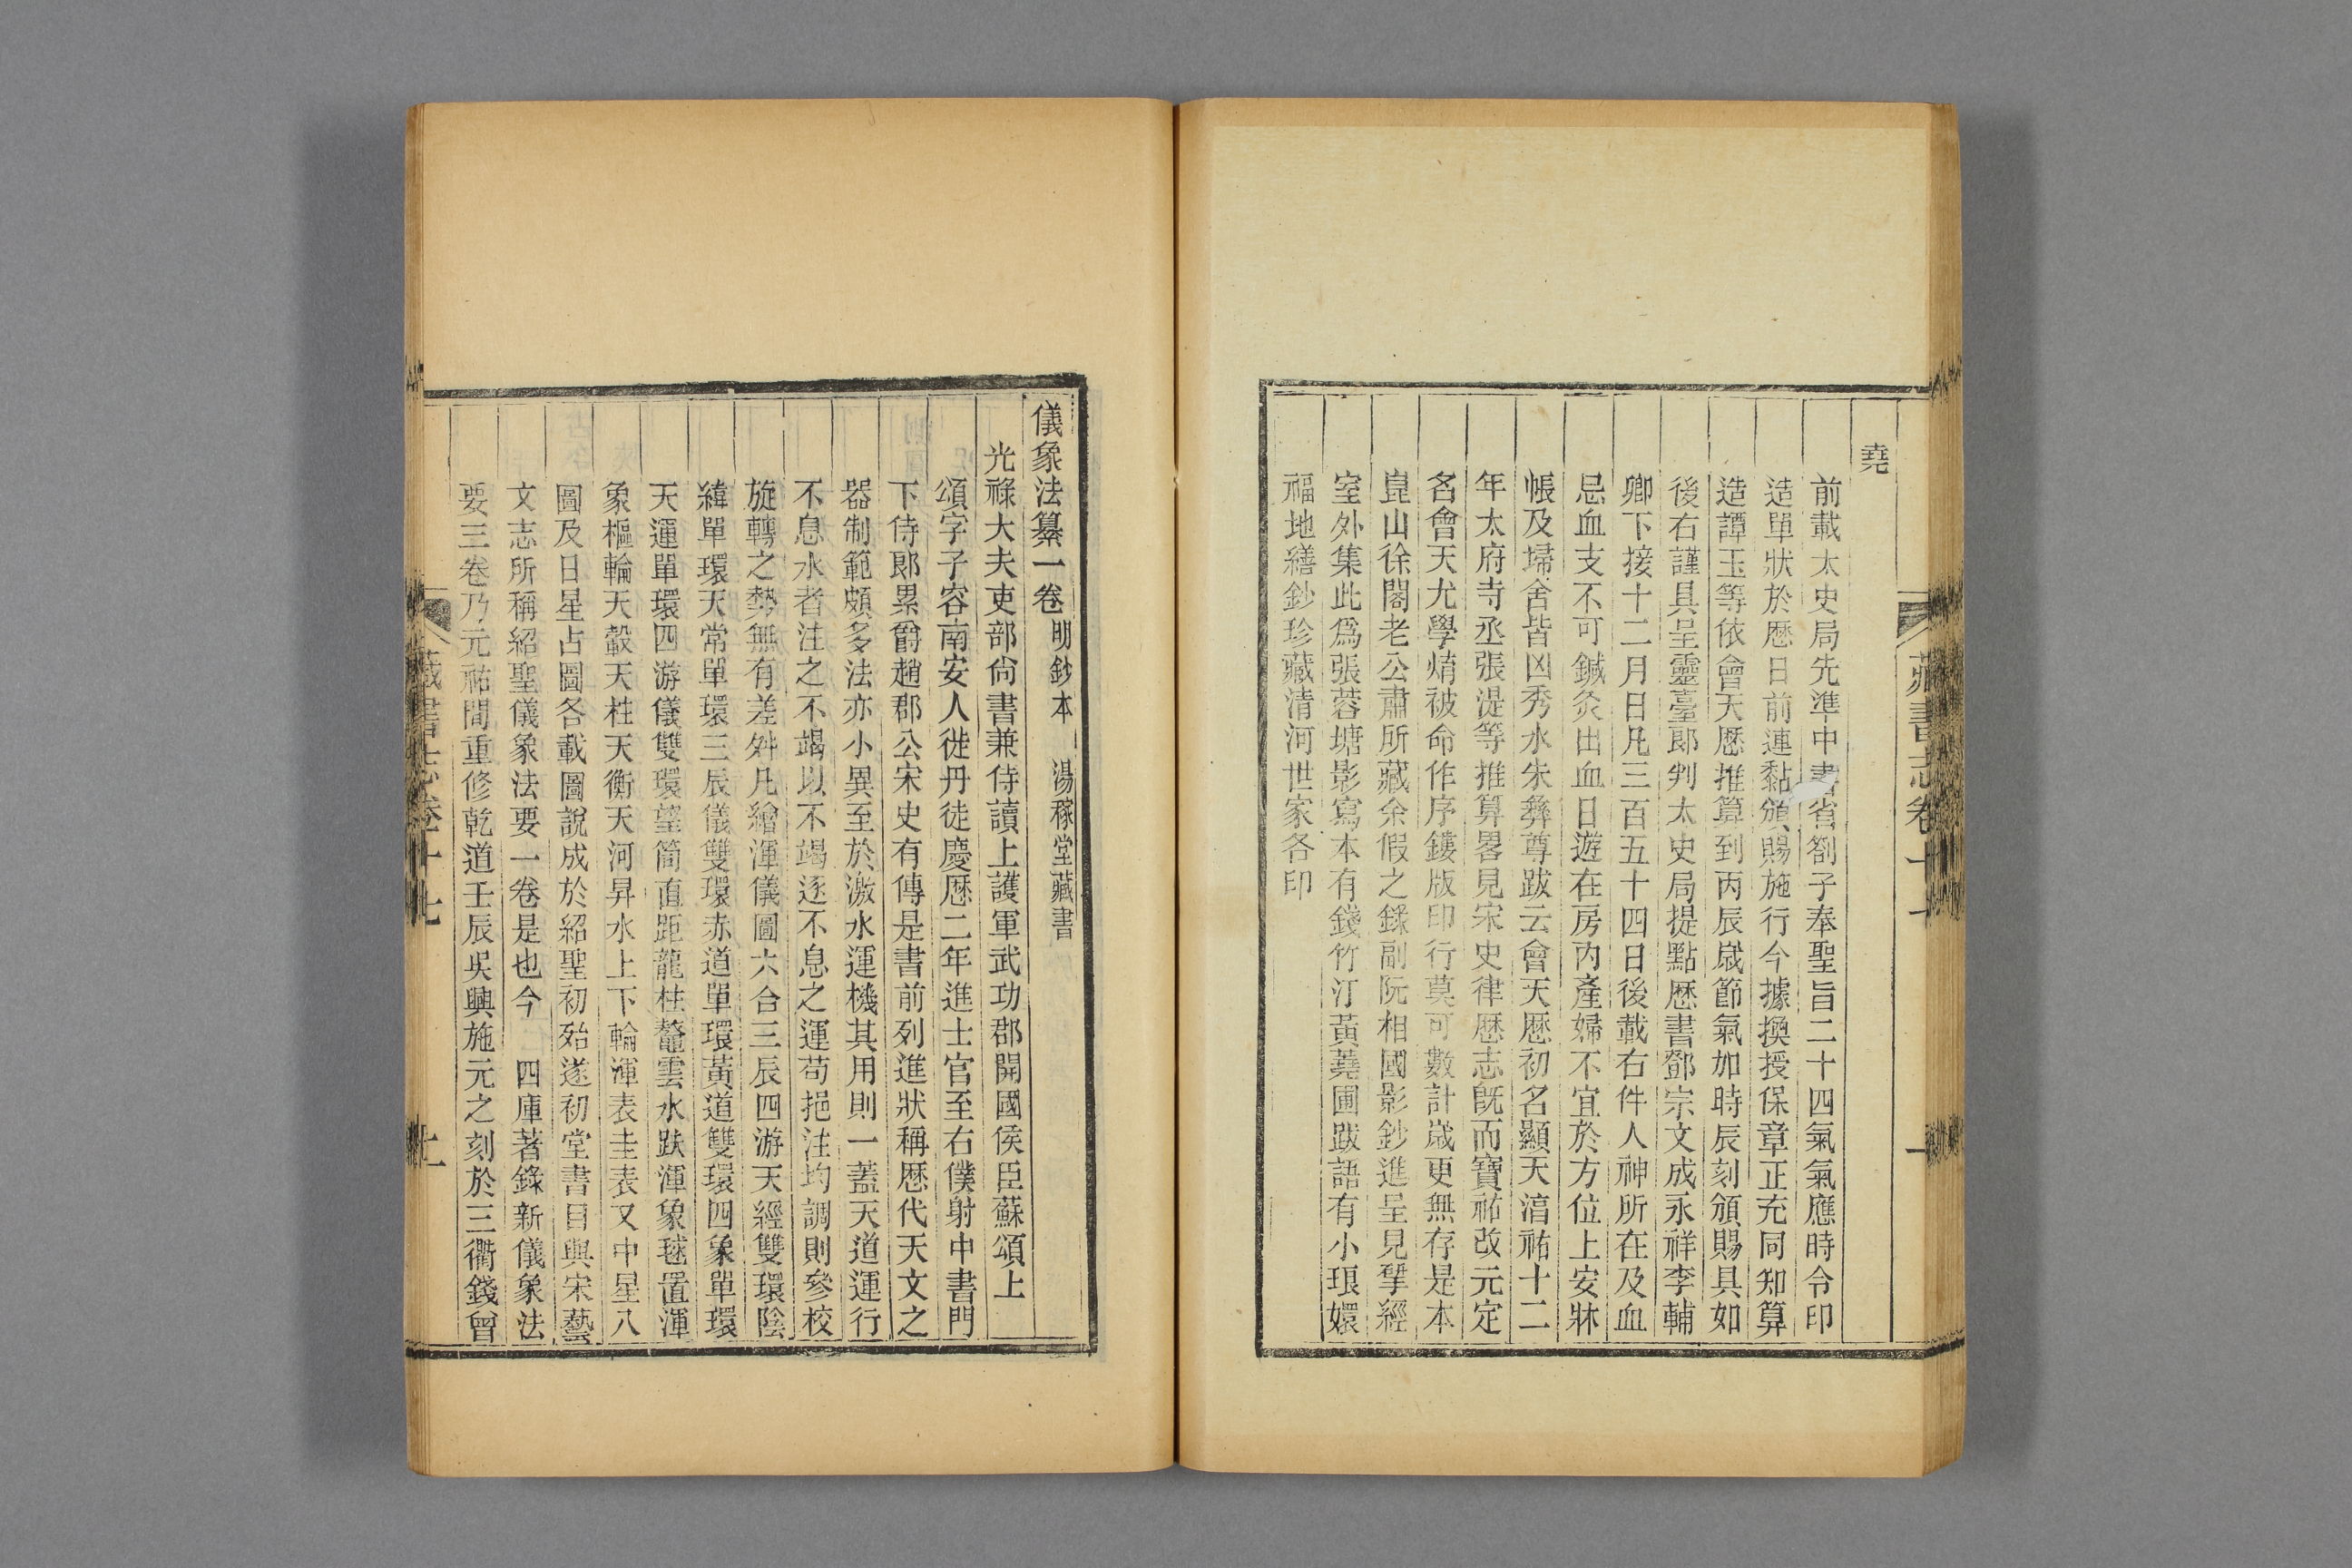 堯
前載太史局先準中書省劄子奉聖旨二十四氣氣應時令印
造單狀於歴日前連黏頒賜施行今據換授保章正充同知算
造譚玉等依會天歴推算到丙辰歲節氣加時辰刻頒賜具如
後右謹具呈靈臺郎判太史局提點歴書鄧宗文成永祥李輔
卿下接十二月日凡三百五十四日後載右件人神所在及血
忌血支不可鍼灸出血日遊在房內產婦不宜於方位上安牀
帳及埽舍皆凶秀水朱彝尊跋云會天歴初名顯天淳祐十二
年太府寺丞張湜等推算畧見宋史律歴志旣而寶祐改元定
名會天尤學焴被命作序鏤版印行莫可數計歲更無存是本
崑山徐閣老公肅所藏余假之錄副阮相國影鈔進呈見揅經
室外集此爲張蓉塘影寫本有錢竹汀黃蕘圃跋語有小琅嬛
福地繕鈔珍藏清河世家各印
儀象法纂一卷明鈔本 湯稼堂藏書
光祿大夫吏部尙書兼侍讀上護軍武功郡開國侯臣蘇頌上
頌字子容南安人徙丹徒慶歴二年進士官至右僕射中書門
下侍郎累爵趙郡公宋史有傳是書前列進狀稱歴代天文之
器制範頗多法亦小異至於激水運機其用則一蓋天道運行
不息水者注之不竭以不竭逐不息之運苟挹注均調則參校
旋轉之勢無有差舛凡繪渾儀圖六合三辰四游天經雙環陰
緯單環天常單環三辰儀雙環赤道單環黃道雙環四象單環
天運單環四游儀雙環望筒直距龍柱鼇雲水趺渾象毬置渾
象樞輪天轂天柱天衡天河昇水上下輪渾表圭表又中星八
圖及日星占圖各載圖說成於紹聖初殆遂初堂書目與宋藝
文志所稱紹聖儀象法要一卷是也今 四庫著錄新儀象法
要三卷乃元祐間重修乾道壬辰吳興施元之刻於三衢錢曾
藏書志卷十七